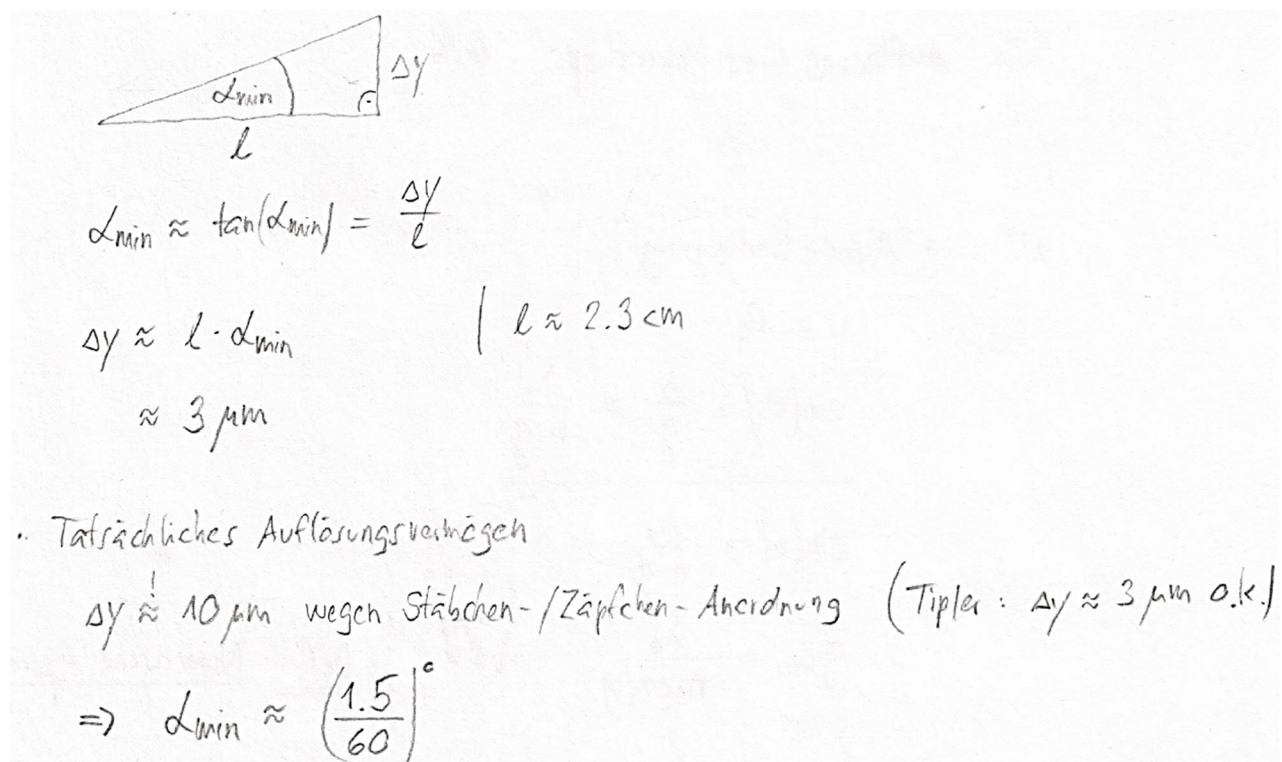 Δy
αmin
l
αmin ≈ tan(αmin) = Δy/l
Δy ≈ l · αmin | l ≈ 2.3 cm
≈ 3 μm
Tatsächliches Auflösungsvermögen
Δy ≈! 10 μm wegen Stäbchen-/Zäpfchen-Anordnung (Tipler: Δy ≈ 3 μm o.k.)
⇒ αmin ≈ (1.5/60)°